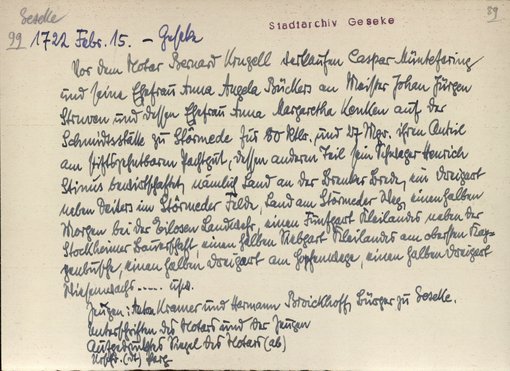 Geseke
Stadtarchiv Geseke
99 1722 Febr. 15. – Geseke
89
Vor dem Notar Bernard Krugell verkaufen Caspar Müntefering
und seine Ehefrau Anna Angela Bückers an Meister Johan Jürgen
Struven und dessen Ehefrau Anna Margaretha Kenken auf der
Schmidtsstätte zu Störmede für 80 Rtlr. und 27 Mgr. ihren Anteil
am stiftszehntbaren Pachtgut, dessen anderen Teil sein Schwager Henrich
Stinus bewirtschaftet, nämlich Land an der Brede, ein Dreigart
neben Deiters im Störmeder Felde, Land am Störmeder Weg, einen halben
Morgen bei der Landwehr, einen Fünfgart Kleilandes neben der
Stockheimer Bauerschaft, einen halben Siebgart Kleilandes am obersten
einen halben Dreigart am Hopfenwege, einen halben Dreigart
Wiesenwachs ..... usw.
Zeugen: Anton Kramer und Hermann Broickhoff, Bürger zu Geseke.
Unterschriften des Notars und der Zeugen
Aufgedrücktes Siegel des Notars (ab)
Urschr. (dt) Perg